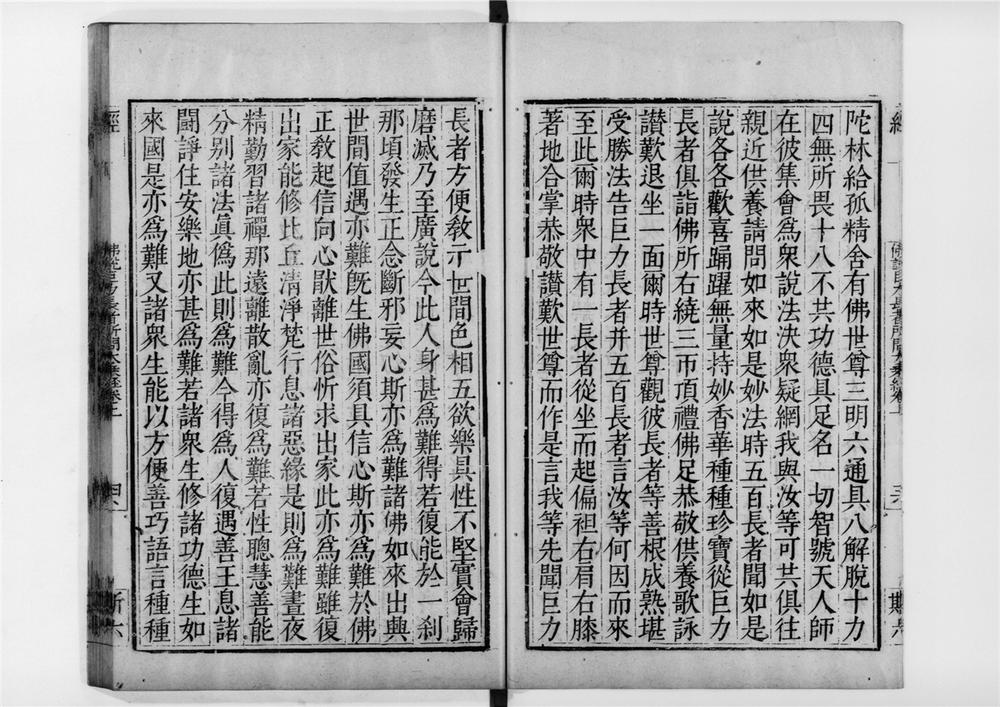 陀林給孤精舍有佛世尊三明六通具八解脫十力
四無所畏十八不共功德具足名一切智號天人師
在彼集會爲衆說法決衆疑網我與汝等可共俱往
親近供養請問如來如是妙法時五百長者聞如是
說各各歡喜踊躍無量持妙香華種種珍寶從巨力
長者俱詣佛所右繞三帀頂禮佛足恭敬供養歌詠
讃歎退坐一面爾時世尊觀彼長者等善根成熟堪
受勝法告巨力長者并五百長者言汝等何因而來
至此爾時衆中有一長者從坐而起偏袒右肩右膝
著地合掌恭敬讃歎世尊而作是言我等先聞巨力
長者方便敎示世間色相五欲樂具性不堅實會歸
磨滅乃至廣說今此人身甚爲難得若復能於一刹
那頃發生正念斷邪妄心斯亦爲難諸佛如來出興
世間值遇亦難旣生佛國須具信心斯亦爲難於佛
正敎起信向心厭離世俗忻求出家此亦爲難雖復
出家能修比丘清淨梵行息諸惡緣是則爲難晝夜
精勤習諸禪那遠離散亂亦復爲難若性聰慧善能
分別諸法眞僞此則爲難今得爲人復遇善王息諸
鬪諍住安樂地亦甚爲難若諸衆生修諸功德生如
來國是亦爲難又諸衆生能以方便善巧語言種種
經
佛說巨力長者所問大乘經卷上
斯六